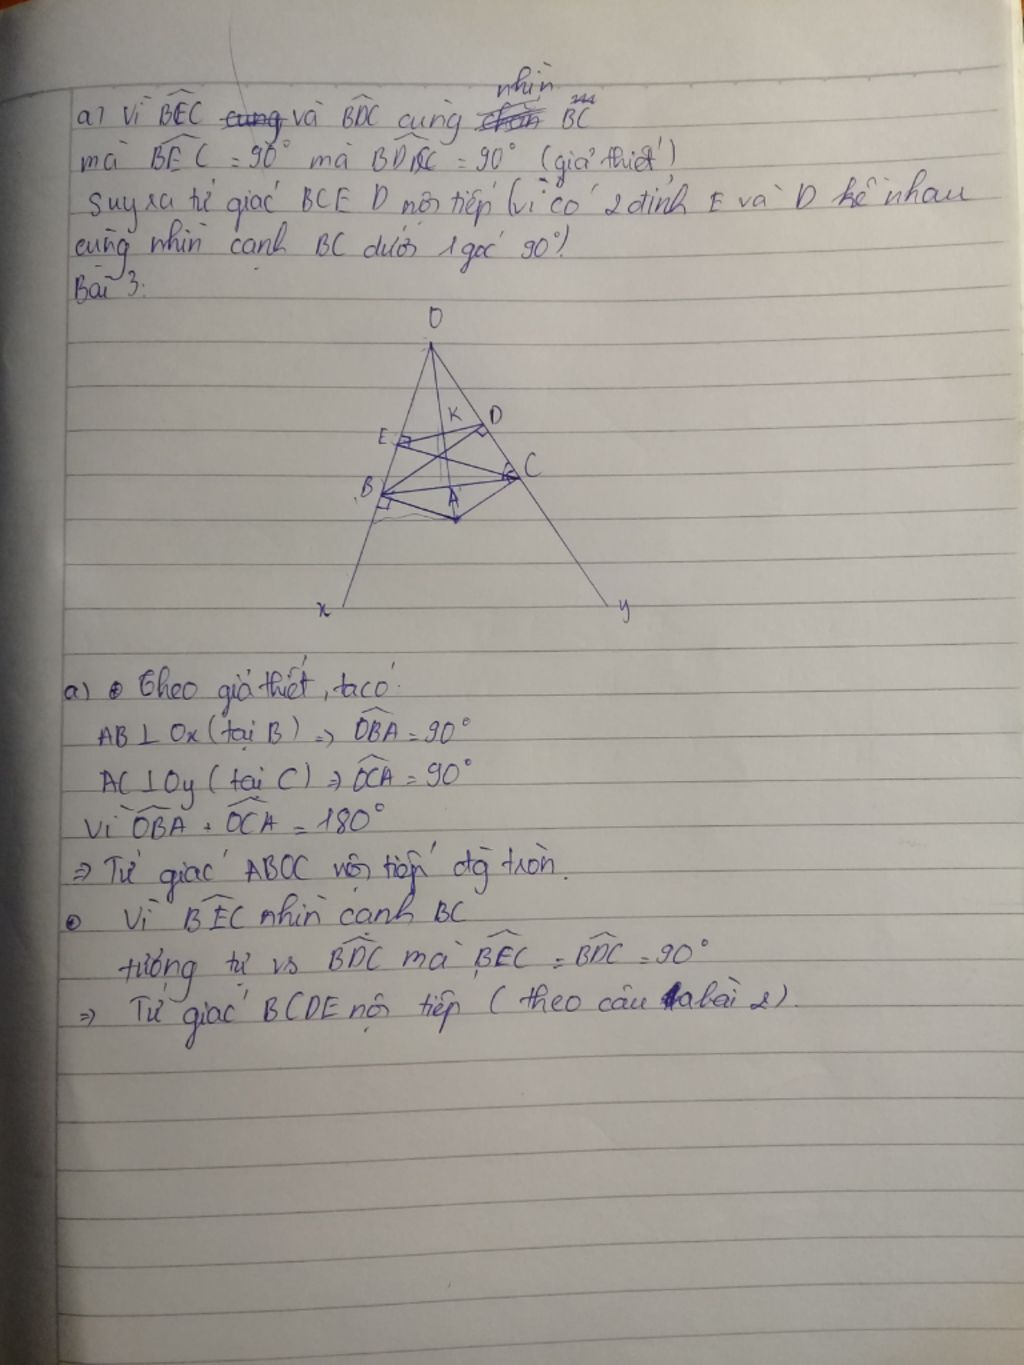 a) Vì BEC cung và BDC cùng nhìn BC
mà BEC = 90° mà BDC = 90° (giả thiết)
Suy ra tứ giác BCE D nội tiếp (vì có 2 đỉnh E và D kề nhau
cùng nhìn cạnh BC dưới 1 góc 90°)
Bài 3:
O
K D
E
C
B
A
x y
a) Theo giả thiết, ta có:
AB ⊥ Ox (tại B) => OBA = 90°
AC ⊥ Oy (tại C) => OCA = 90°
Vì OBA + OCA = 180°
=> Tứ giác ABOC nội tiếp đg tròn.
Vì BEC nhìn cạnh BC
tương tự vs BDC mà BEC = BDC = 90°
=> Tứ giác BCDE nội tiếp (theo câu a bài 2)